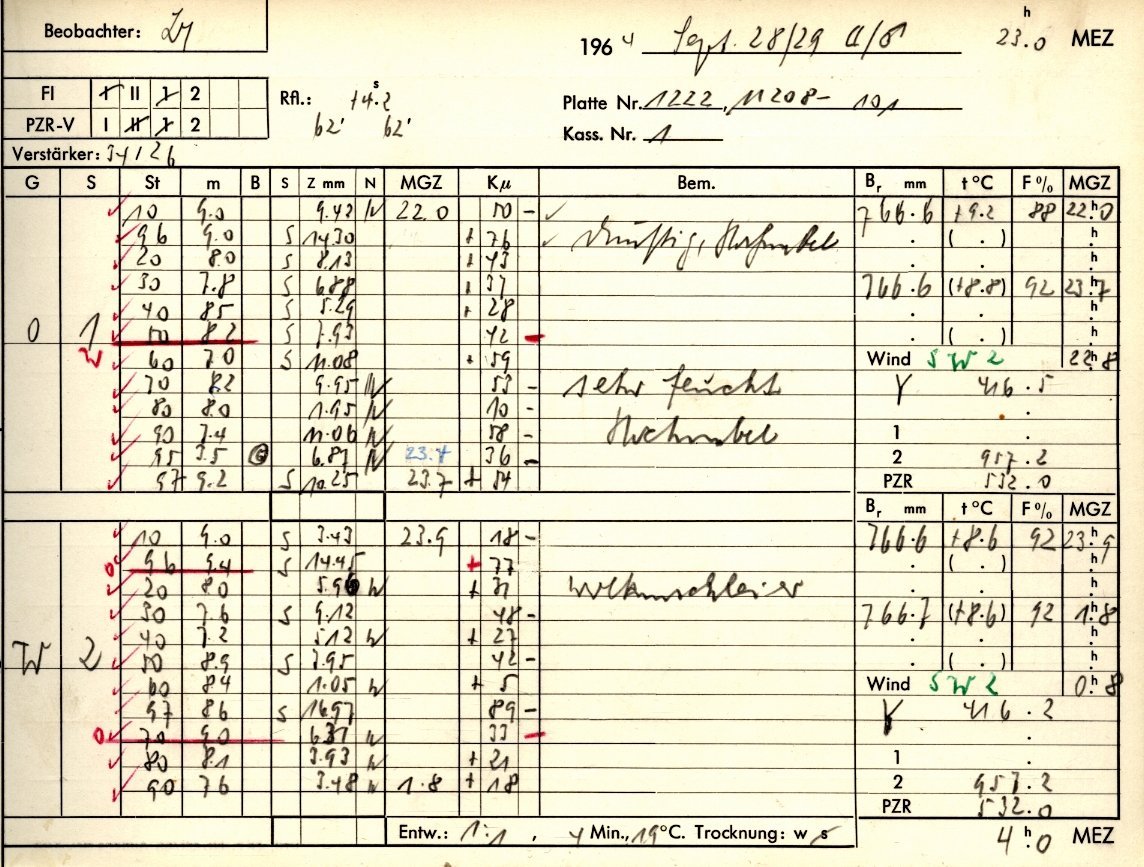 Beobachter:
1964 Sept. 28/29 23.0 h MEZ
FI I II 1 2
PZR-V I II 1 2
Rfl.: +4.2 s
62' 62'
Platte Nr. 1222, 11208-
Kass. Nr. 1
Verstärker: 34/26
G S St m B S Z mm N MGZ Kμ Bem. Br mm t °C F % MGZ
10 9.0 9.42 N 22.0 50 – 766.6 +9.2 88 22.h0
96 9.0 S 14.30 + 76 dunstig, Hochnebel . ( . ) h
20 8.0 S 8.13 + 43 h
30 7.8 S 6.88 + 37 766.6 (+8.8) 92 23.h7
40 8.5 S 5.29 + 28 h
0 1 50 8.2 S 7.93 42 – . ( . ) h
W 60 7.0 S 11.08 + 59 Wind SW 2 22.h8
70 8.2 9.95 N 53 – sehr feucht γ 416.5
80 8.0 1.95 N 10 –
90 7.4 11.06 N 58 – Hochnebel 1
95 3.5 6.87 N 23.7 36 – 2 957.2
97 9.2 S 10.25 23.7 + 54 PZR 532.0
Br mm t °C F % MGZ
10 9.0 S 3.43 23.9 18 – 766.6 +8.6 92 23.h9
0 96 9.4 S 14.45 + 77 . ( . ) h
20 8.0 5.96 N + 31 Wolkenschleier h
30 7.6 S 9.12 48 – 766.7 (+8.6) 92 1.h8
40 7.2 5.12 N + 27 h
W 2 50 8.9 S 7.95 42 – . ( . ) h
60 8.4 1.05 N + 5 Wind SW 2 0.h8
97 8.6 S 16.97 89 – γ 416.2
0 70 9.0 6.31 N 33 –
80 8.1 3.93 N + 21 1
90 7.6 3.48 N 1.8 + 18 2 957.2
PZR 532.0
Entw.: 1:1, 4 Min., 19°C. Trocknung: w s 4.h0 MEZ